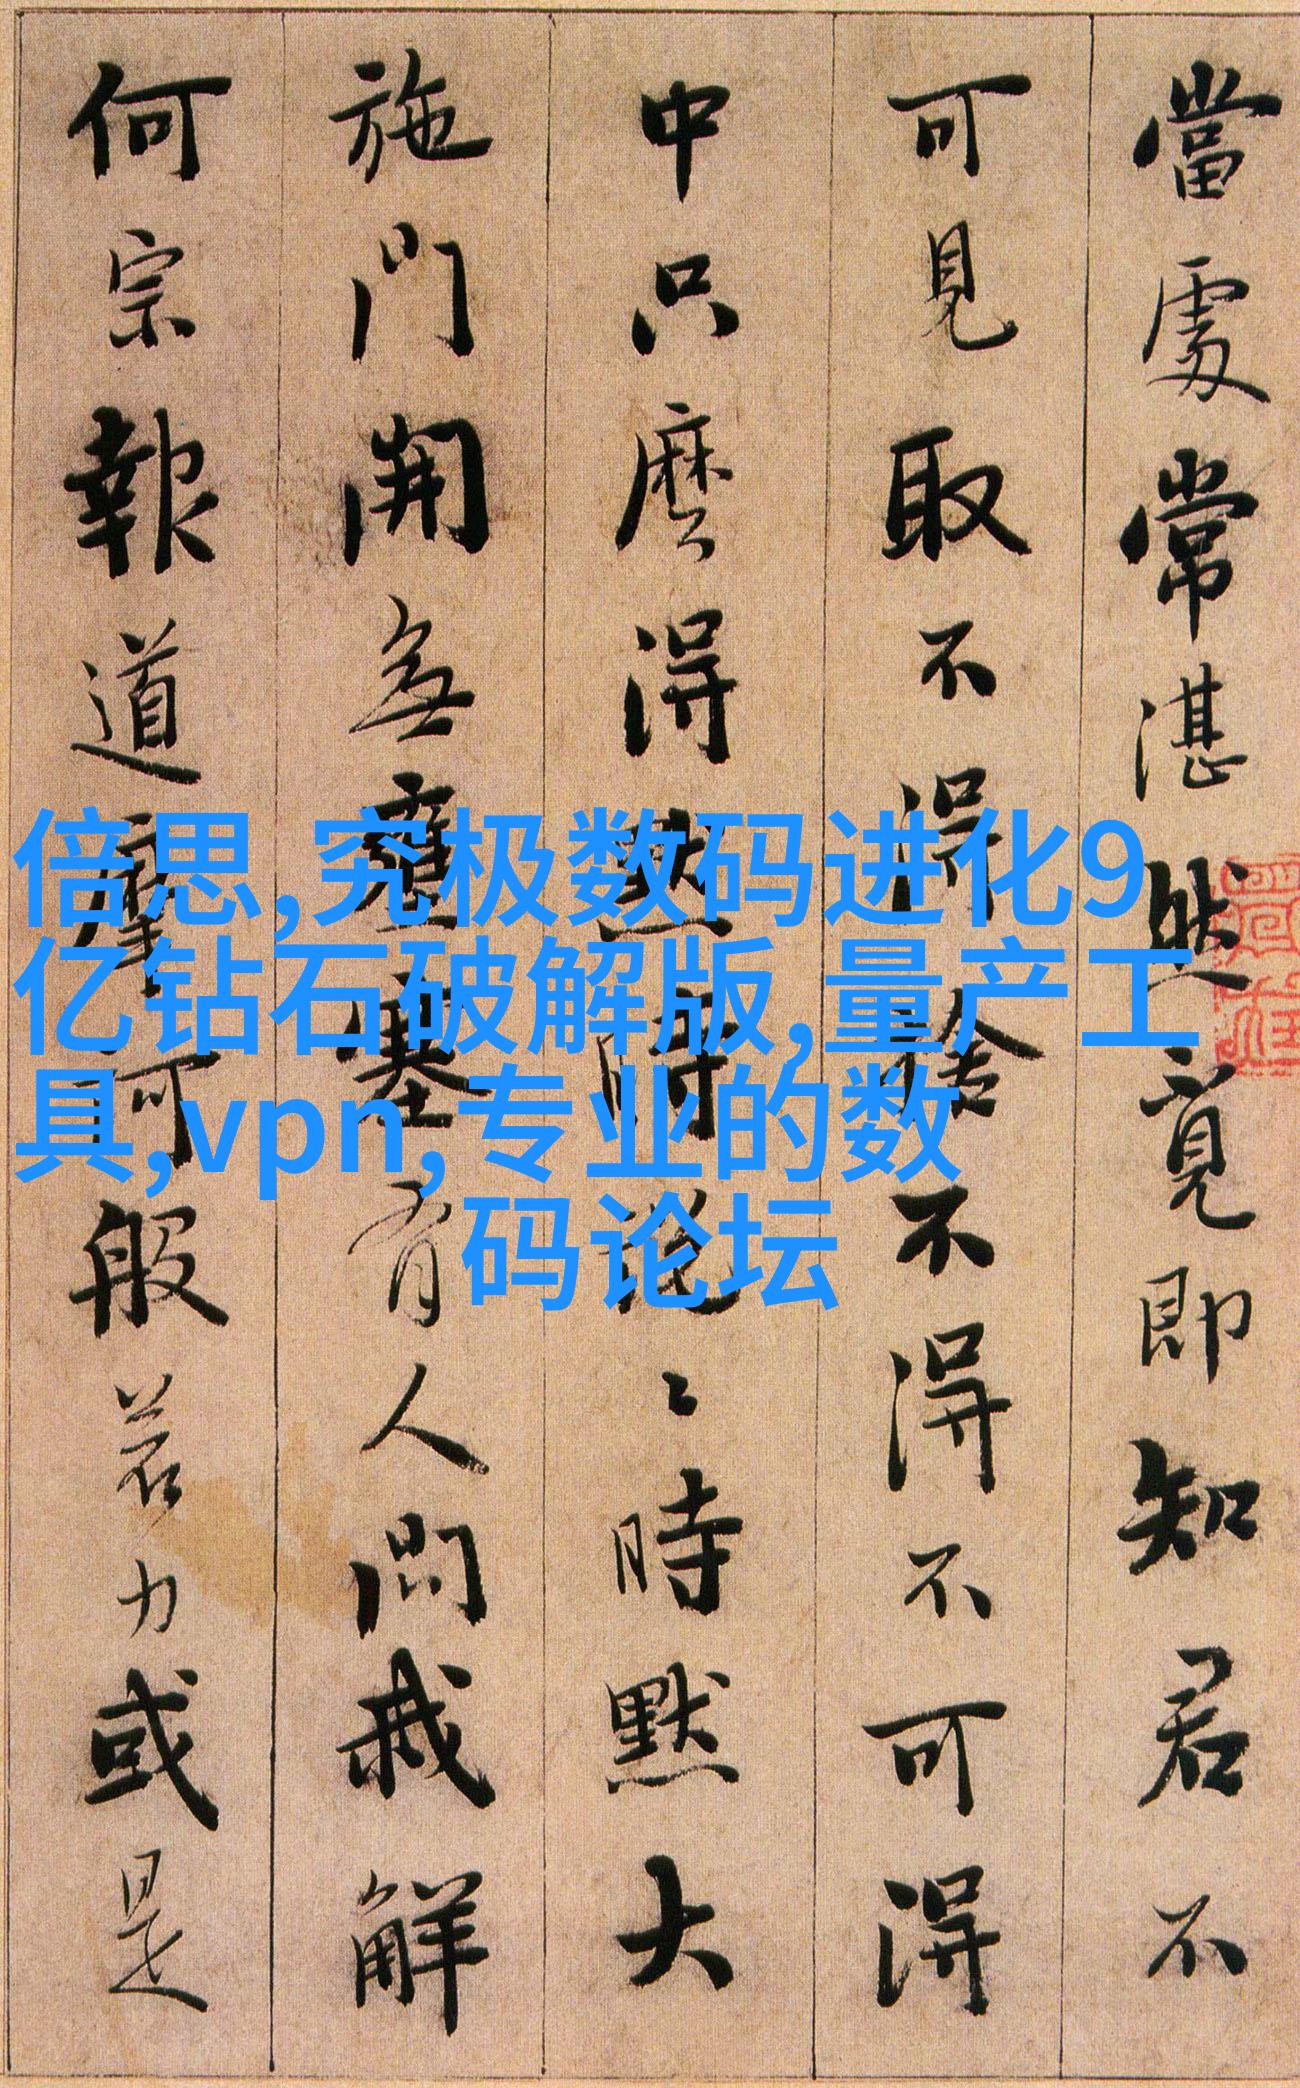 當處常湛然覓即知君不
可見取不得捨不得不可得
中只麼得默時說〻時默大
施門開無壅塞有人問我解
何宗報道摩訶般若力或是
倍思,究极数码进化9
亿钻石破解版,量产工
具,vpn,专业的数
码论坛